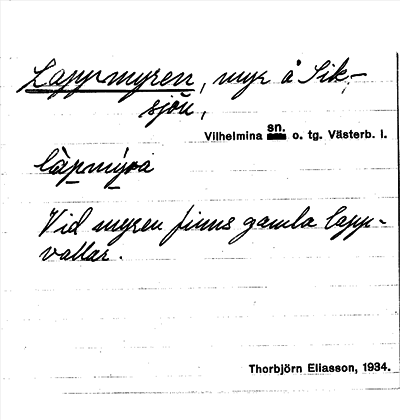 Lappmyren, myr å Sik-
sjön,
Vilhelmina sn. o. tg. Västerb. l.
làpmýra
Vid myren finns gamla lapp-
vallar.
Thorbjörn Eliasson, 1934.